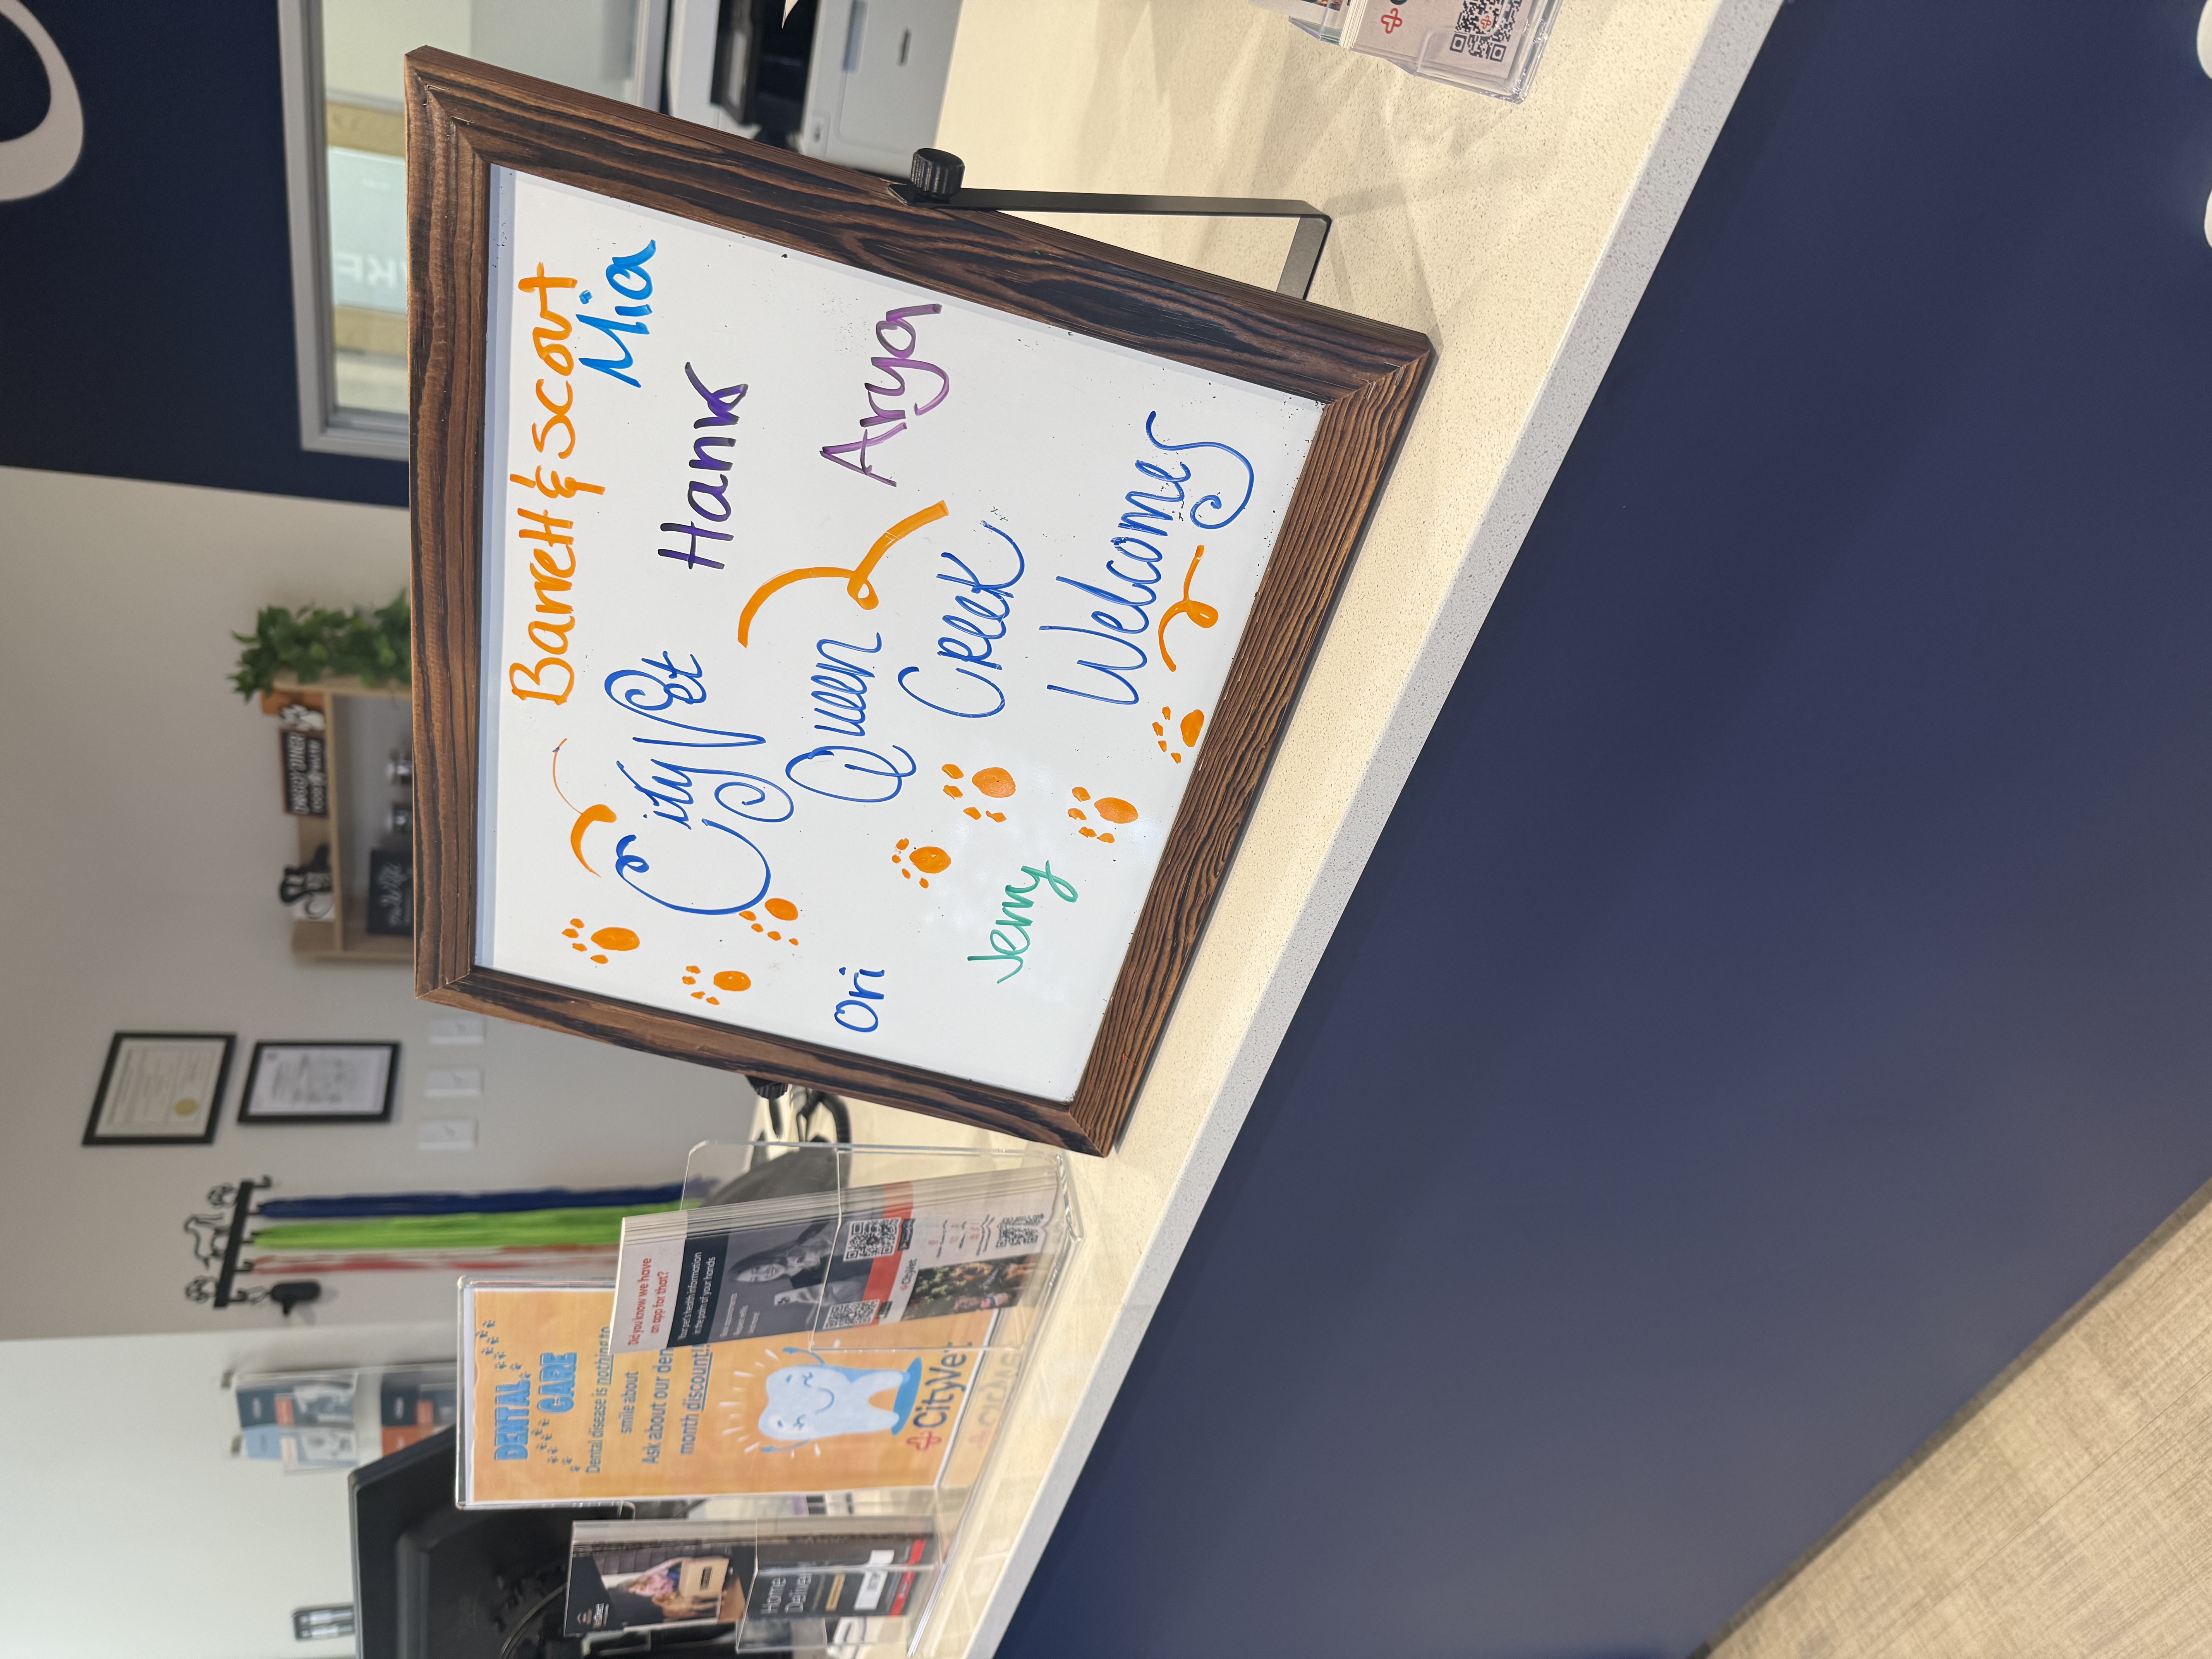 Barrett & Scout
Mia
CityVet
Hank
Queen
Arya
Creek
Welcomes
Ori
Jerry
DENTAL
CARE
Dental disease is nothing to
smile about
Ask about our den
month discount!
CityVet
Did you know we have
an app for that?
Your pet's health information
in the palm of your hands
CityVet
Home
Deliver